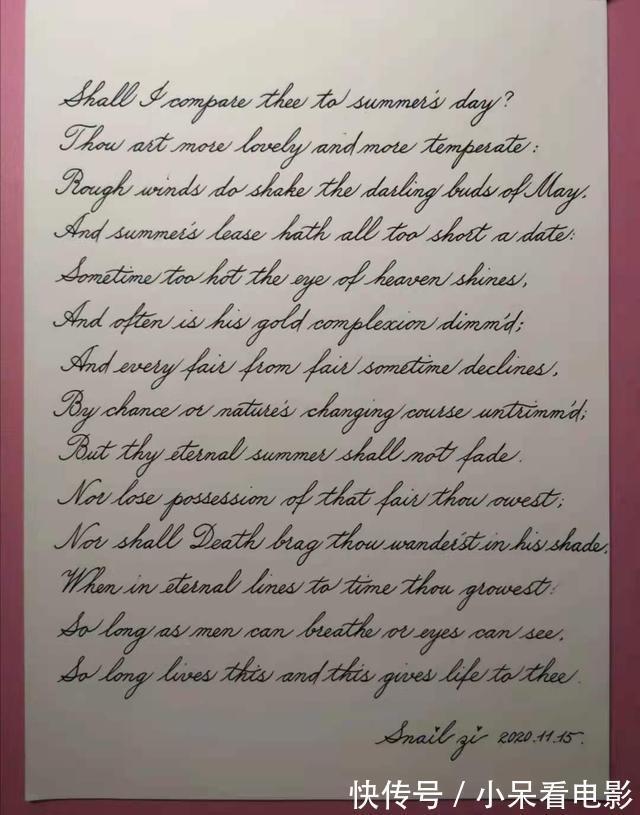 Shall I compare thee to summer's day?
Thou art more lovely and more temperate:
Rough winds do shake the darling buds of May.
And summer's lease hath all too short a date:
Sometime too hot the eye of heaven shines,
And often is his gold complexion dimm'd;
And every fair from fair sometime declines,
By chance or nature's changing course untrimm'd;
But thy eternal summer shall not fade.
Nor lose possession of that fair thou owest;
Nor shall Death brag thou wander'st in his shade,
When in eternal lines to time thou growest:
So long as men can breathe or eyes can see,
So long lives this and this gives life to thee.
Snail zi 2020.11.15.
快传号 / 小呆看电影